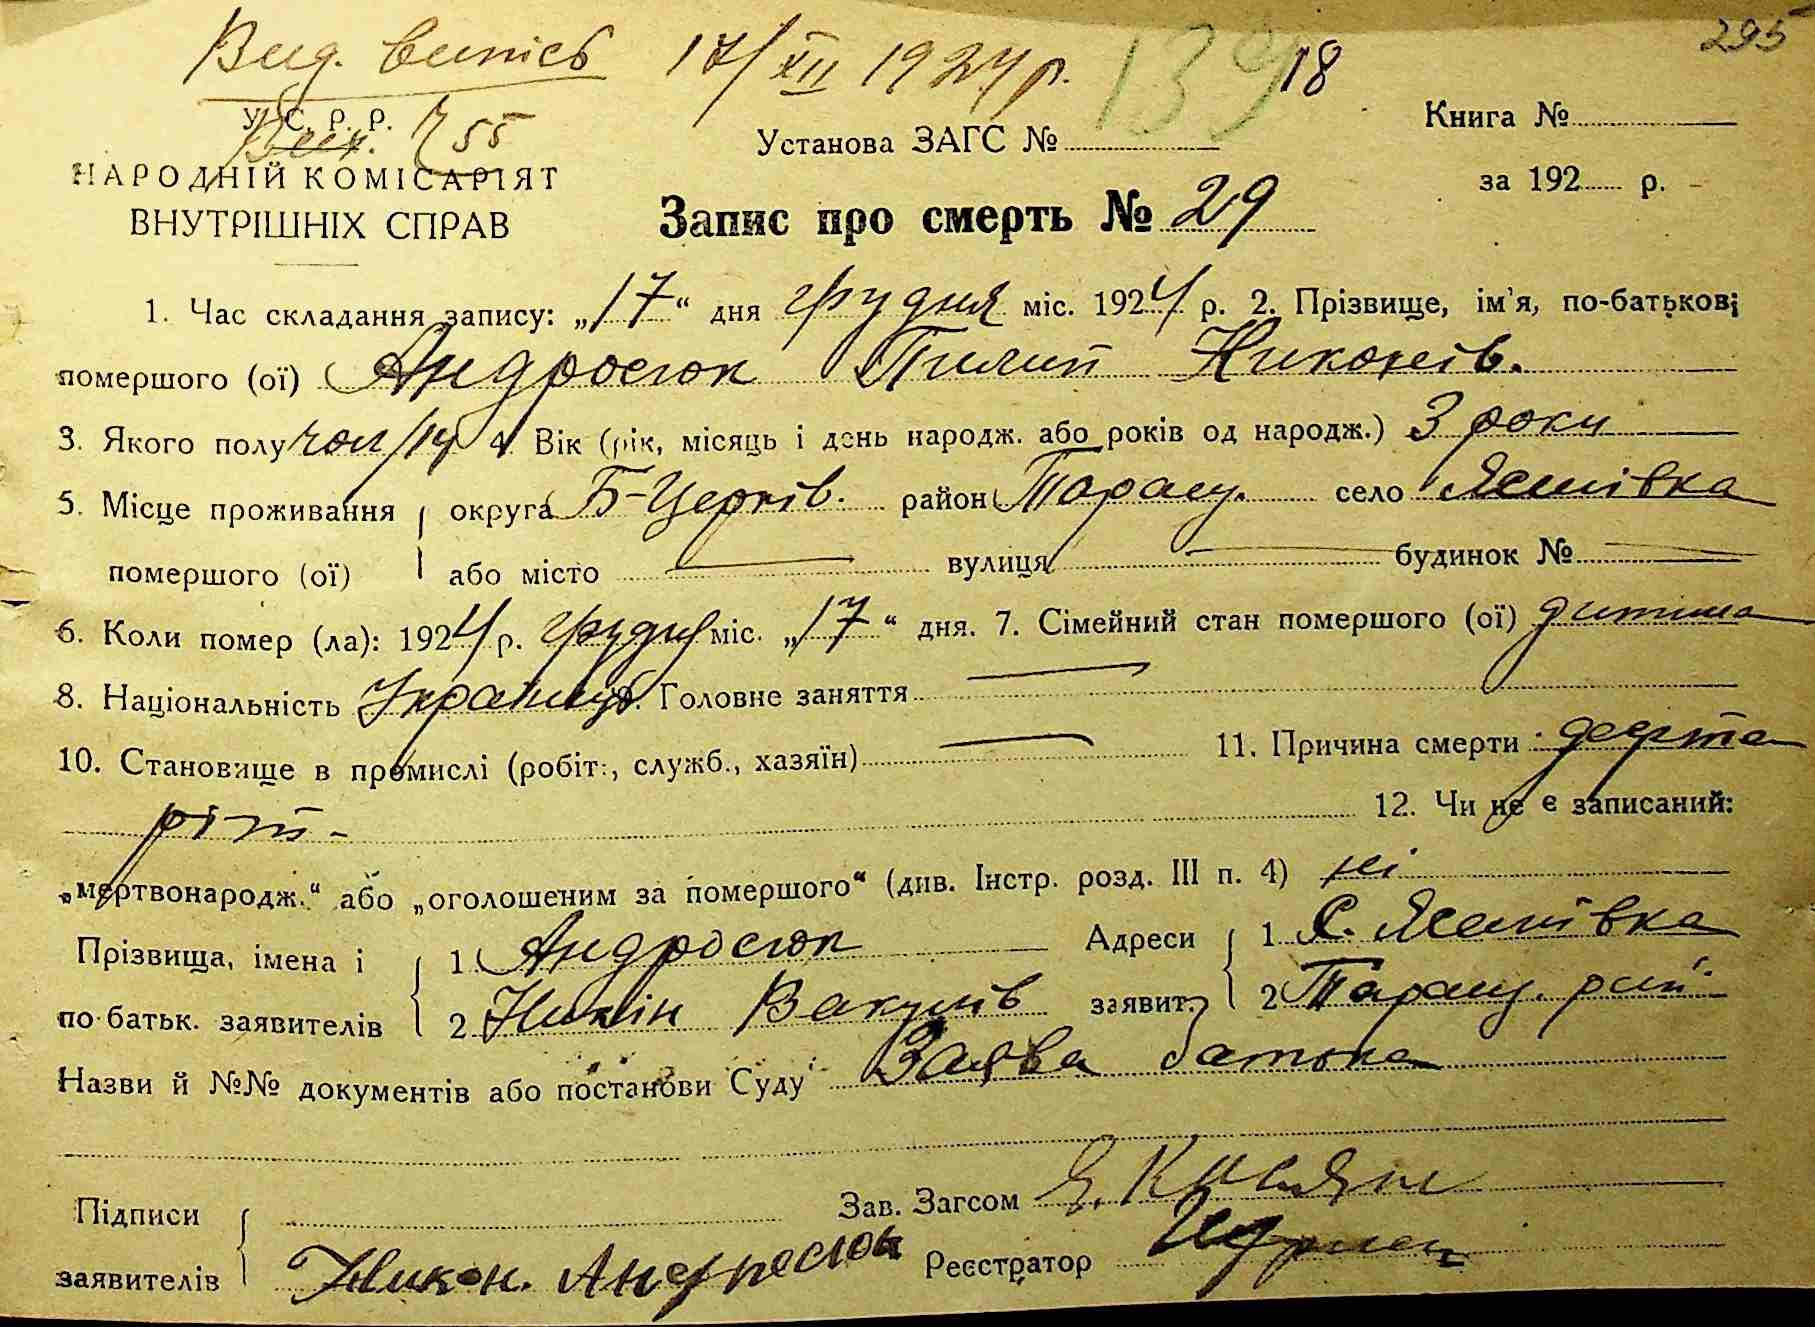 295
Вид. витіс 17/XII 1924 р. 139 18
У. С. Р. Р.
755
НАРОДНІЙ КОМІСАРІЯТ
ВНУТРІШНІХ СПРАВ
Установа ЗАГС №
Книга №
за 192 р.
Запис про смерть № 29
1. Час складання запису: „17“ дня грудня міс. 1924 р. 2. Прізвище, ім'я, по-батькові
помершого (ої) Андросюк Пилип Никонів.
3. Якого полу чол 4. Вік (рік, місяць і день народж. або років од народж.) 3 роки
5. Місце проживання округа Б-Церків. район Таращ. село Ясинівка
помершого (ої) або місто — вулиця — будинок № —
6. Коли помер (ла): 1924 р. грудня міс. „17“ дня. 7. Сімейний стан помершого (ої) дитина
8. Національність Українець 9. Головне заняття —
10. Становище в промислі (робіт., служб., хазяїн) — 11. Причина смерти дефте
ріт- 12. Чи не є записаний:
„мертвонародж.“ або „оголошеним за помершого“ (див. Інстр. розд. III п. 4) ні
Прізвища, імена і 1 Андросюк Адреси 1 С. Ясинівка
по-батьк. заявителів 2 Никін Вакулів заявит. 2 Таращ. рай-
Назви й №№ документів або постанови Суду Заява батька
Підписи Зав. Загсом
заявителів Никон. Андросюк Реєстратор